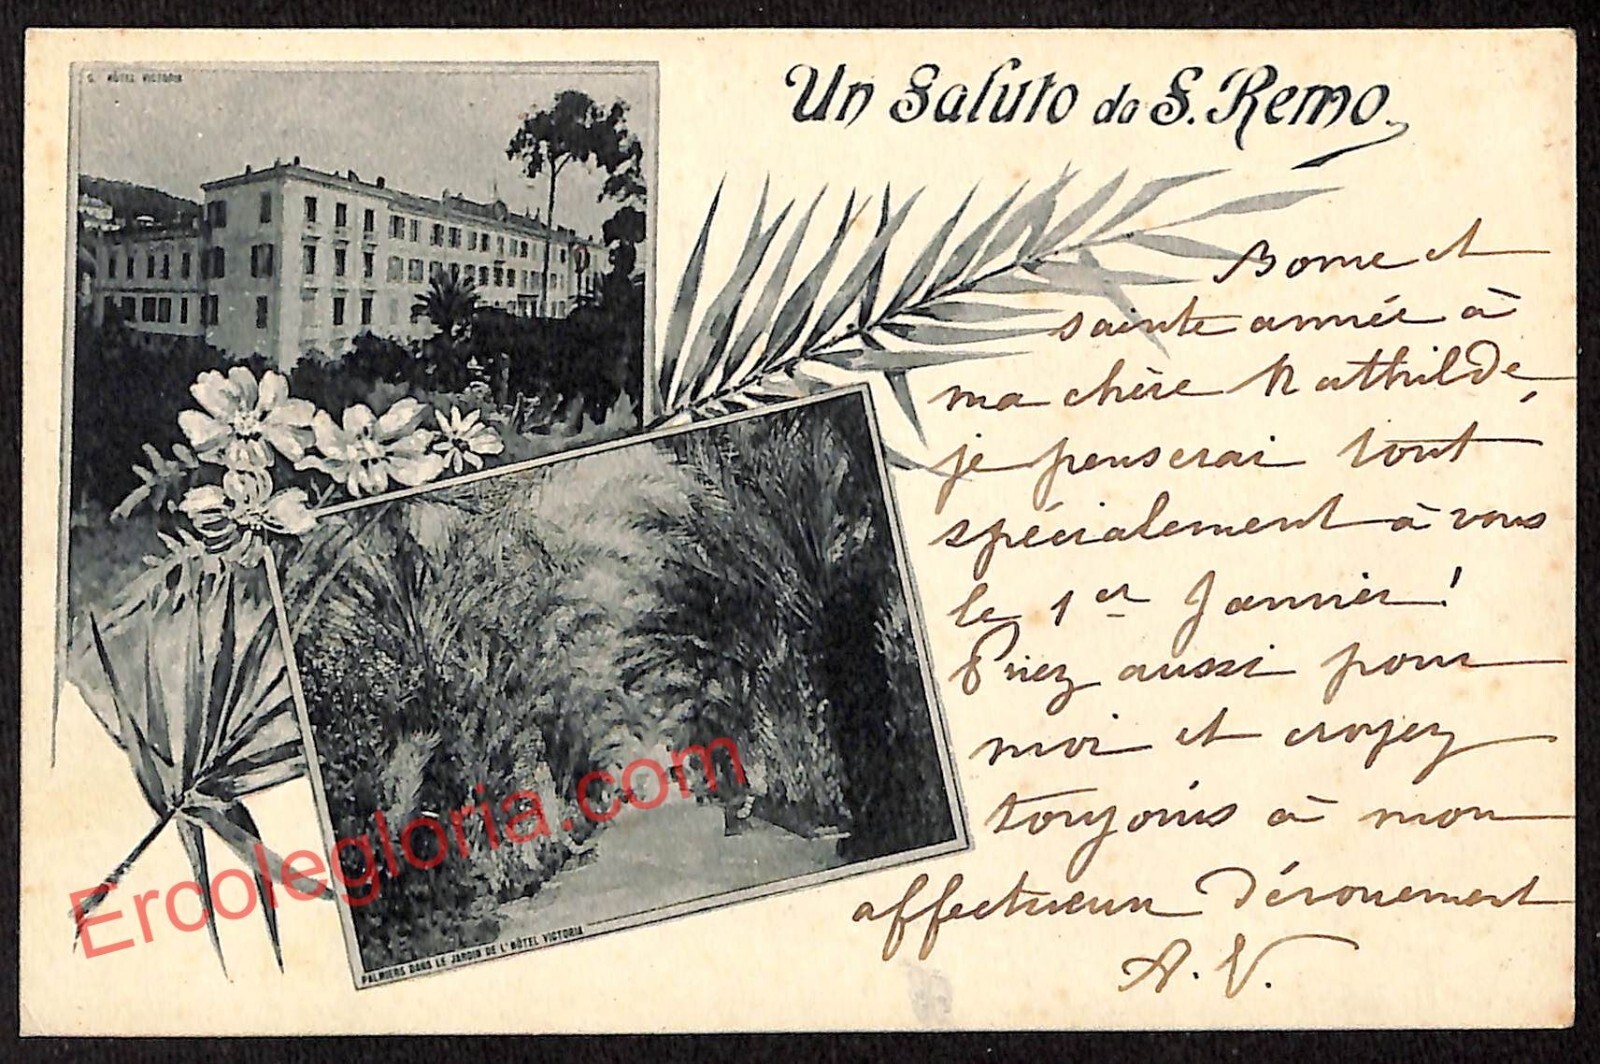 G. HÔTEL VICTORIA
Un Saluto da S. Remo.
Bonne et
sainte année à
ma chère Mathilde,
je penserai tout
spécialement à vous
le 1er Janvier!
Priez aussi pour
moi et croyez
toujours à mon
affectueux dévouement
A. V.
PALMIERS DANS LE JARDIN DE L'HÔTEL VICTORIA
Ercolegloria.com